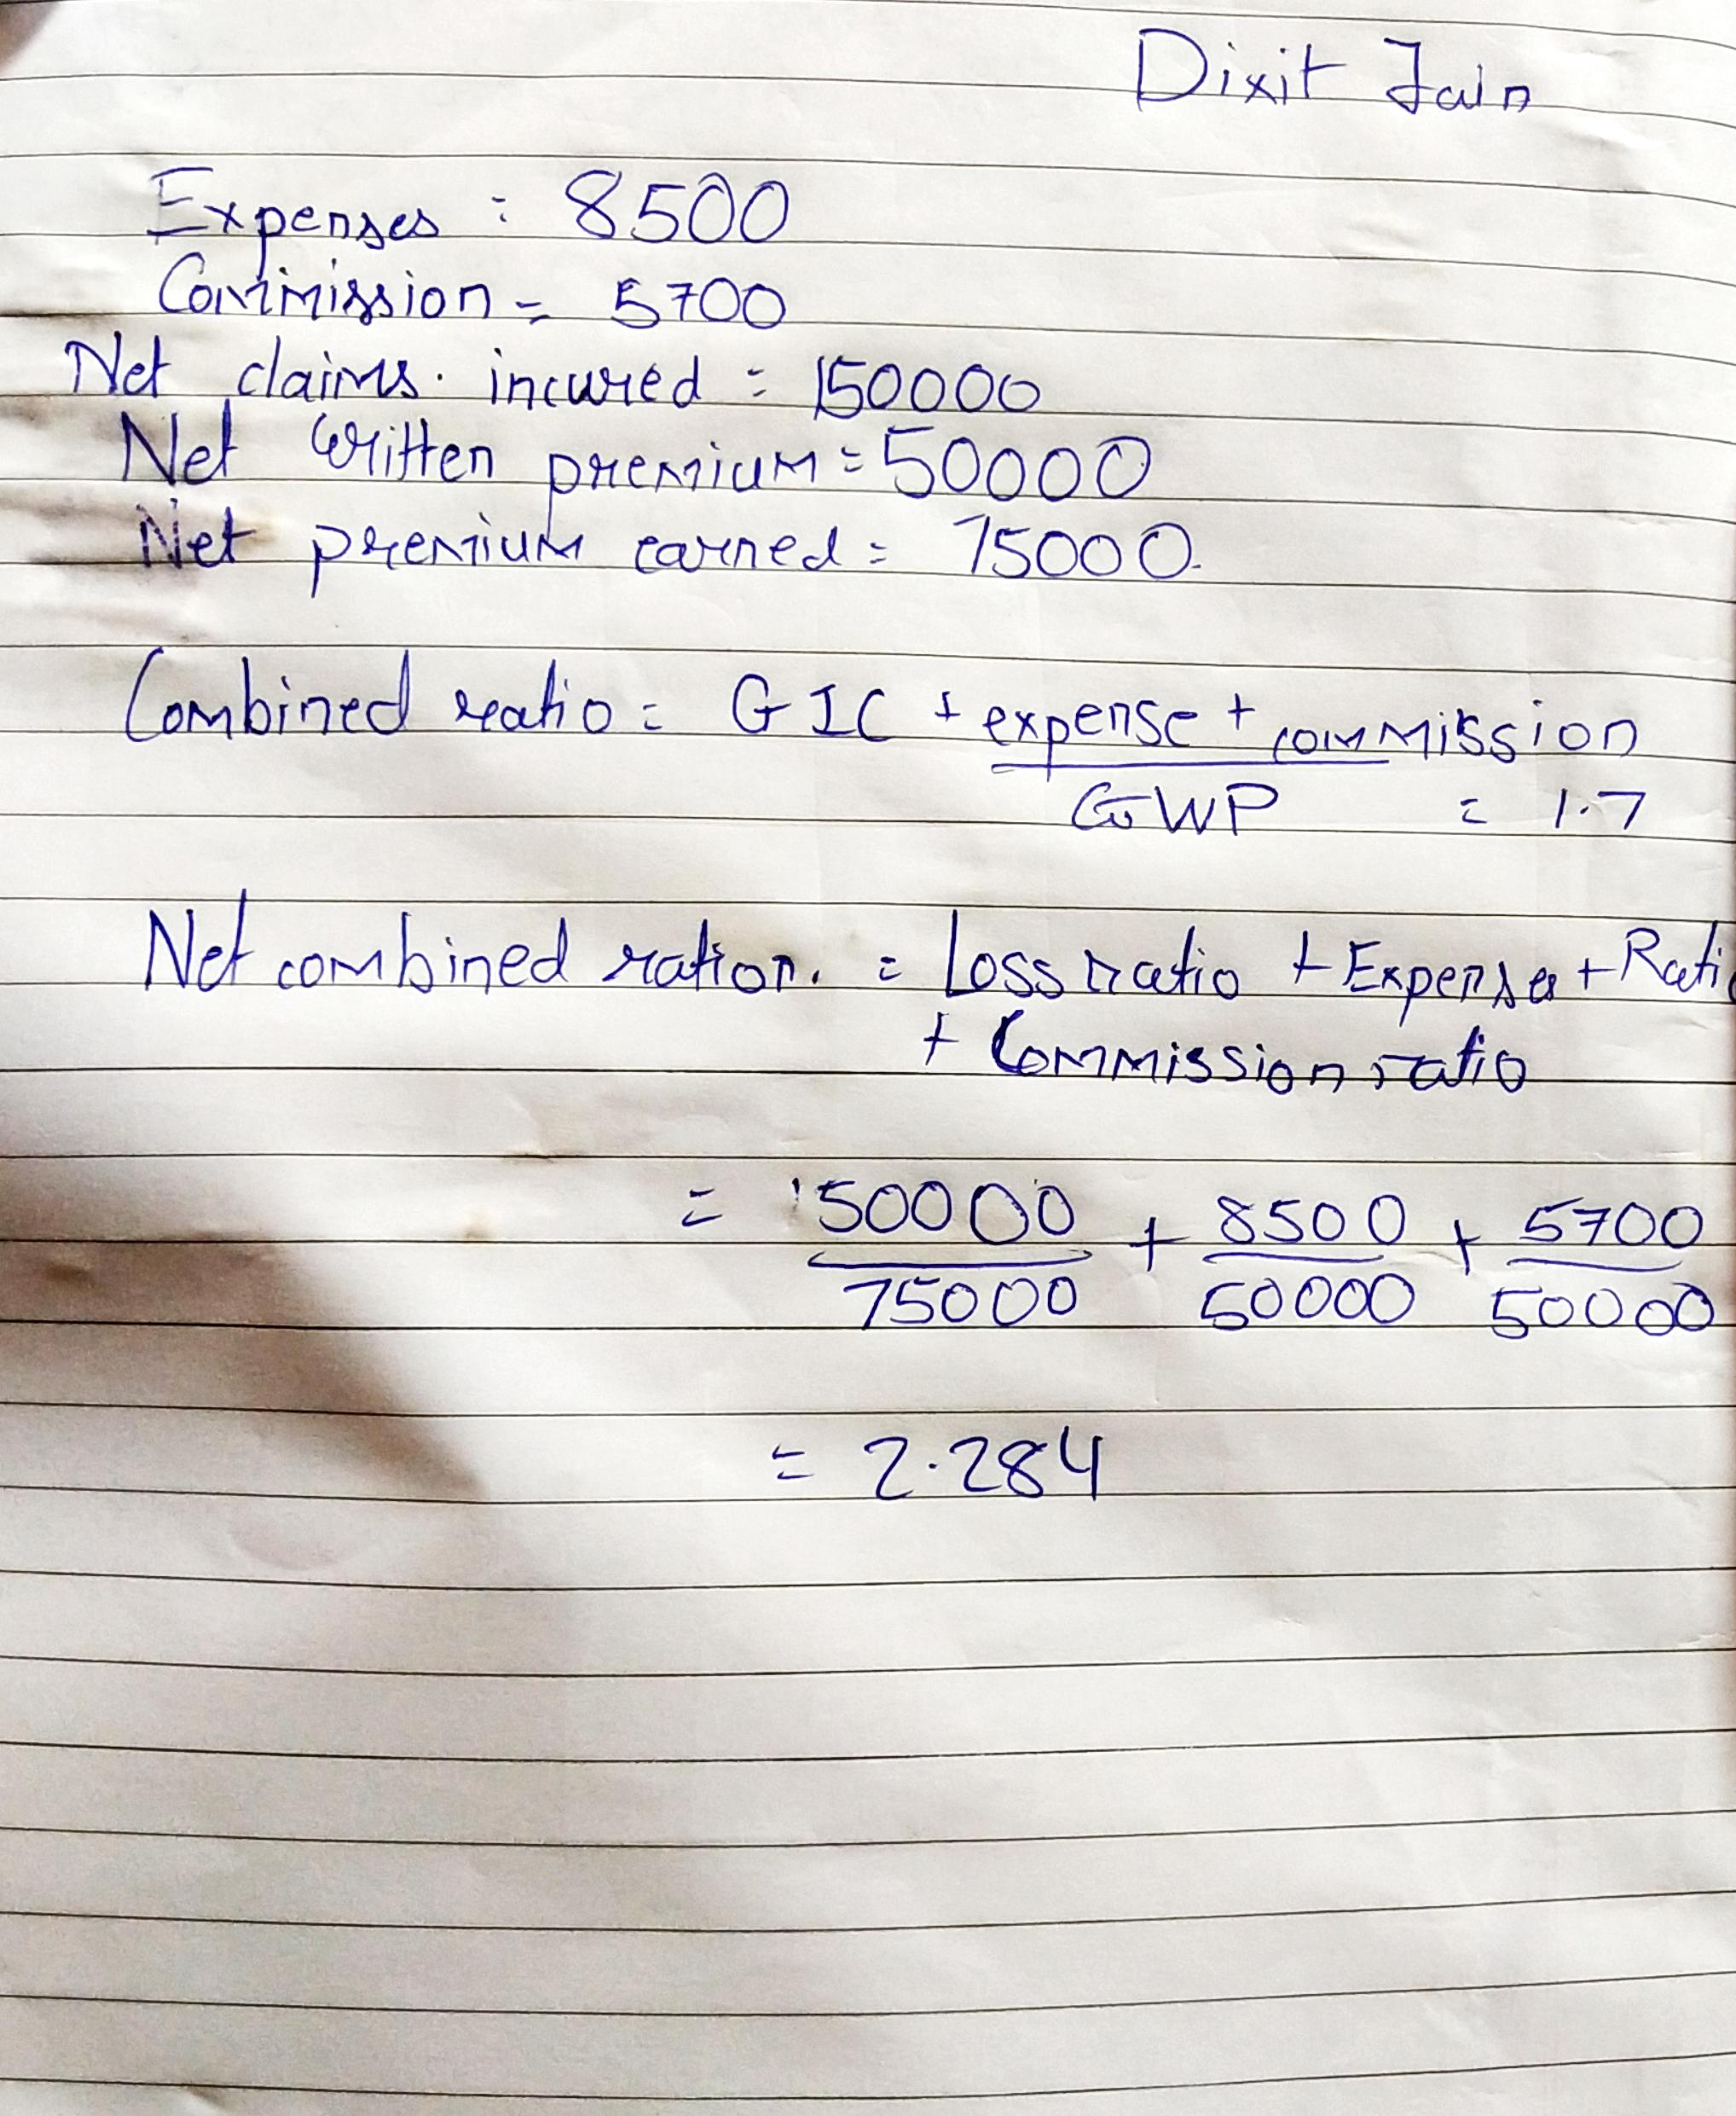 Dixit Jain
Expenses : 8500
Commission = 5700
Net claims. incured = 150000
Net written premium = 50000
Net premium earned = 75000.
Combined ratio = GIC + expense + commission
GWP = 1.7
Net combined ration. = Loss ratio + Expense + Ratio
+ Commission ratio
= 150000 + 8500 + 5700
75000 50000 50000
= 2.284